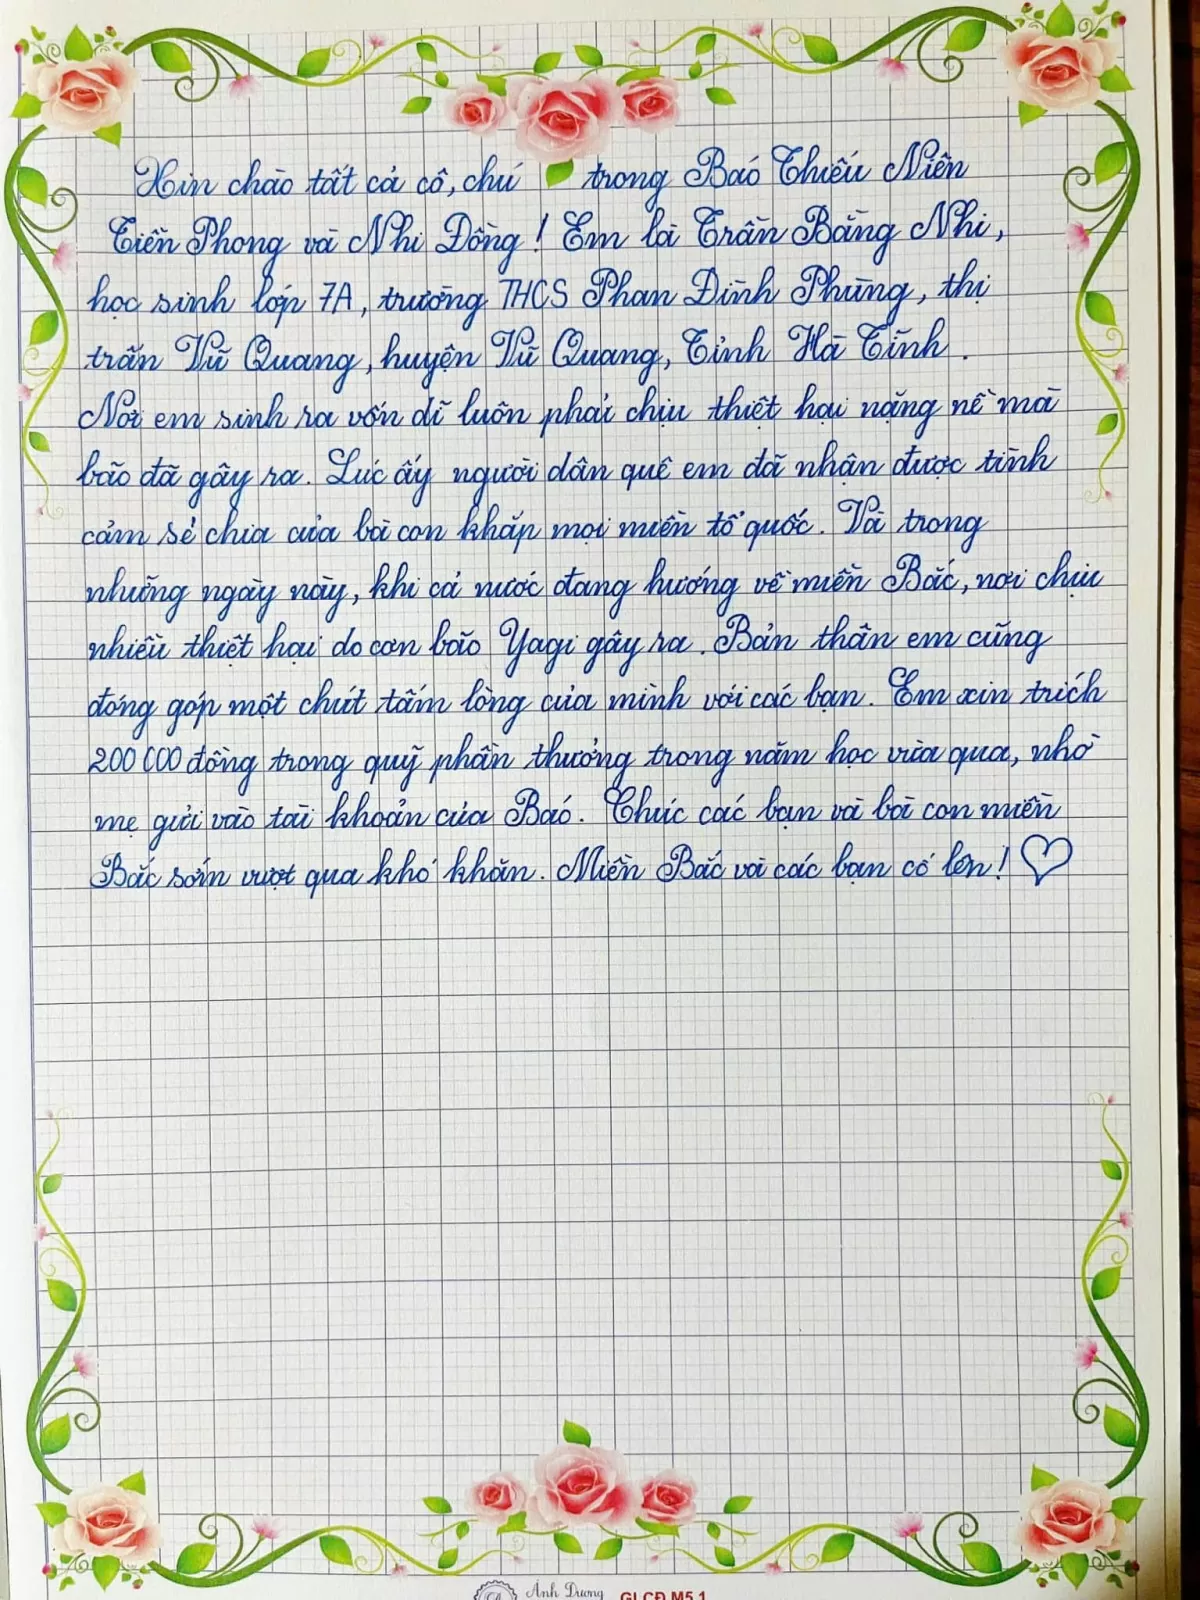 Xin chào tất cả cô, chú trong Báo Thiếu Niên
Tiền Phong và Nhi Đồng! Em là Trần Băng Nhi,
học sinh lớp 7A, trường THCS Phan Đình Phùng, thị
trấn Vũ Quang, huyện Vũ Quang, Tỉnh Hà Tĩnh.
Nơi em sinh ra vốn dĩ luôn phải chịu thiệt hại nặng nề mà
bão đã gây ra. Lúc ấy người dân quê em đã nhận được tình
cảm sẻ chia của bà con khắp mọi miền tổ quốc. Và trong
những ngày này, khi cả nước đang hướng về miền Bắc, nơi chịu
nhiều thiệt hại do cơn bão Yagi gây ra. Bản thân em cũng
đóng góp một chút tấm lòng của mình với các bạn. Em xin trích
200 000 đồng trong quỹ phần thưởng trong năm học vừa qua, nhờ
mẹ gửi vào tài khoản của Báo. Chúc các bạn và bà con miền
Bắc sớm vượt qua khó khăn. Miền Bắc và các bạn cố lên!
Ánh Dương GLCĐ M5.1